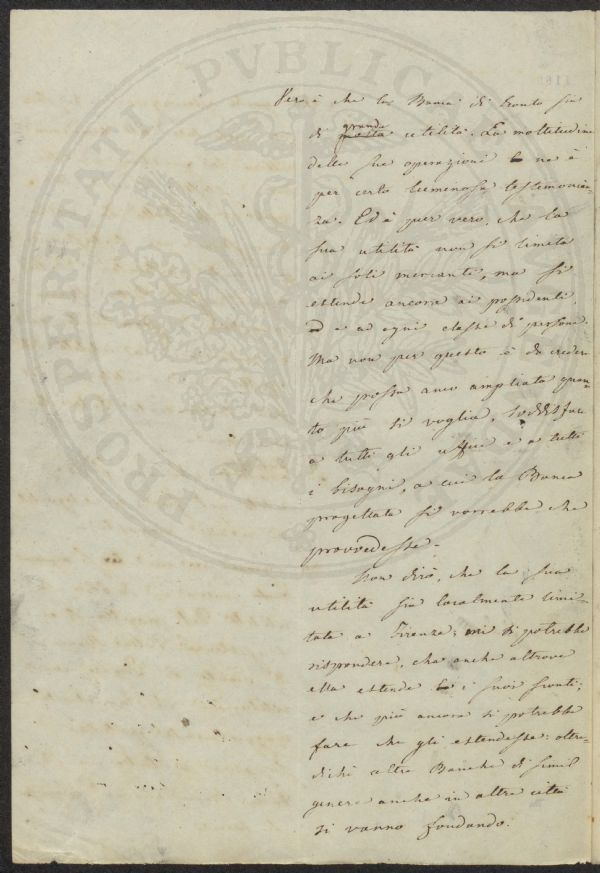 Ver è che la Banca di Sconto sia
di grande utilità. La moltitudine
delle sue operazioni ne è
per certo luminosa testimonian-
za. Ed è pur vero, che la
sua utilità non si limita
ai soli mercanti, ma si
estende ancora ai possidenti,
e ad ogni classe di persone.
Ma non per questo è da credere
che possa anco ampliata quan-
to più si voglia, soddisfare
a tutti gli uffici e a tutti
i bisogni, a cui la Banca
progettata si vorrebbe che
provvedesse.
Non dirò, che la sua
utilità sia localmente limi-
tata a Firenze; mi si potrebbe
rispondere, che anche altrove
ella estende i suoi sconti;
e che più ancora si potrebbe
fare che gli estendesse: oltre-
dichè altre Banche di simil
genere anche in altre città
si vanno fondando.
PROSPERITATI PVBLICAE